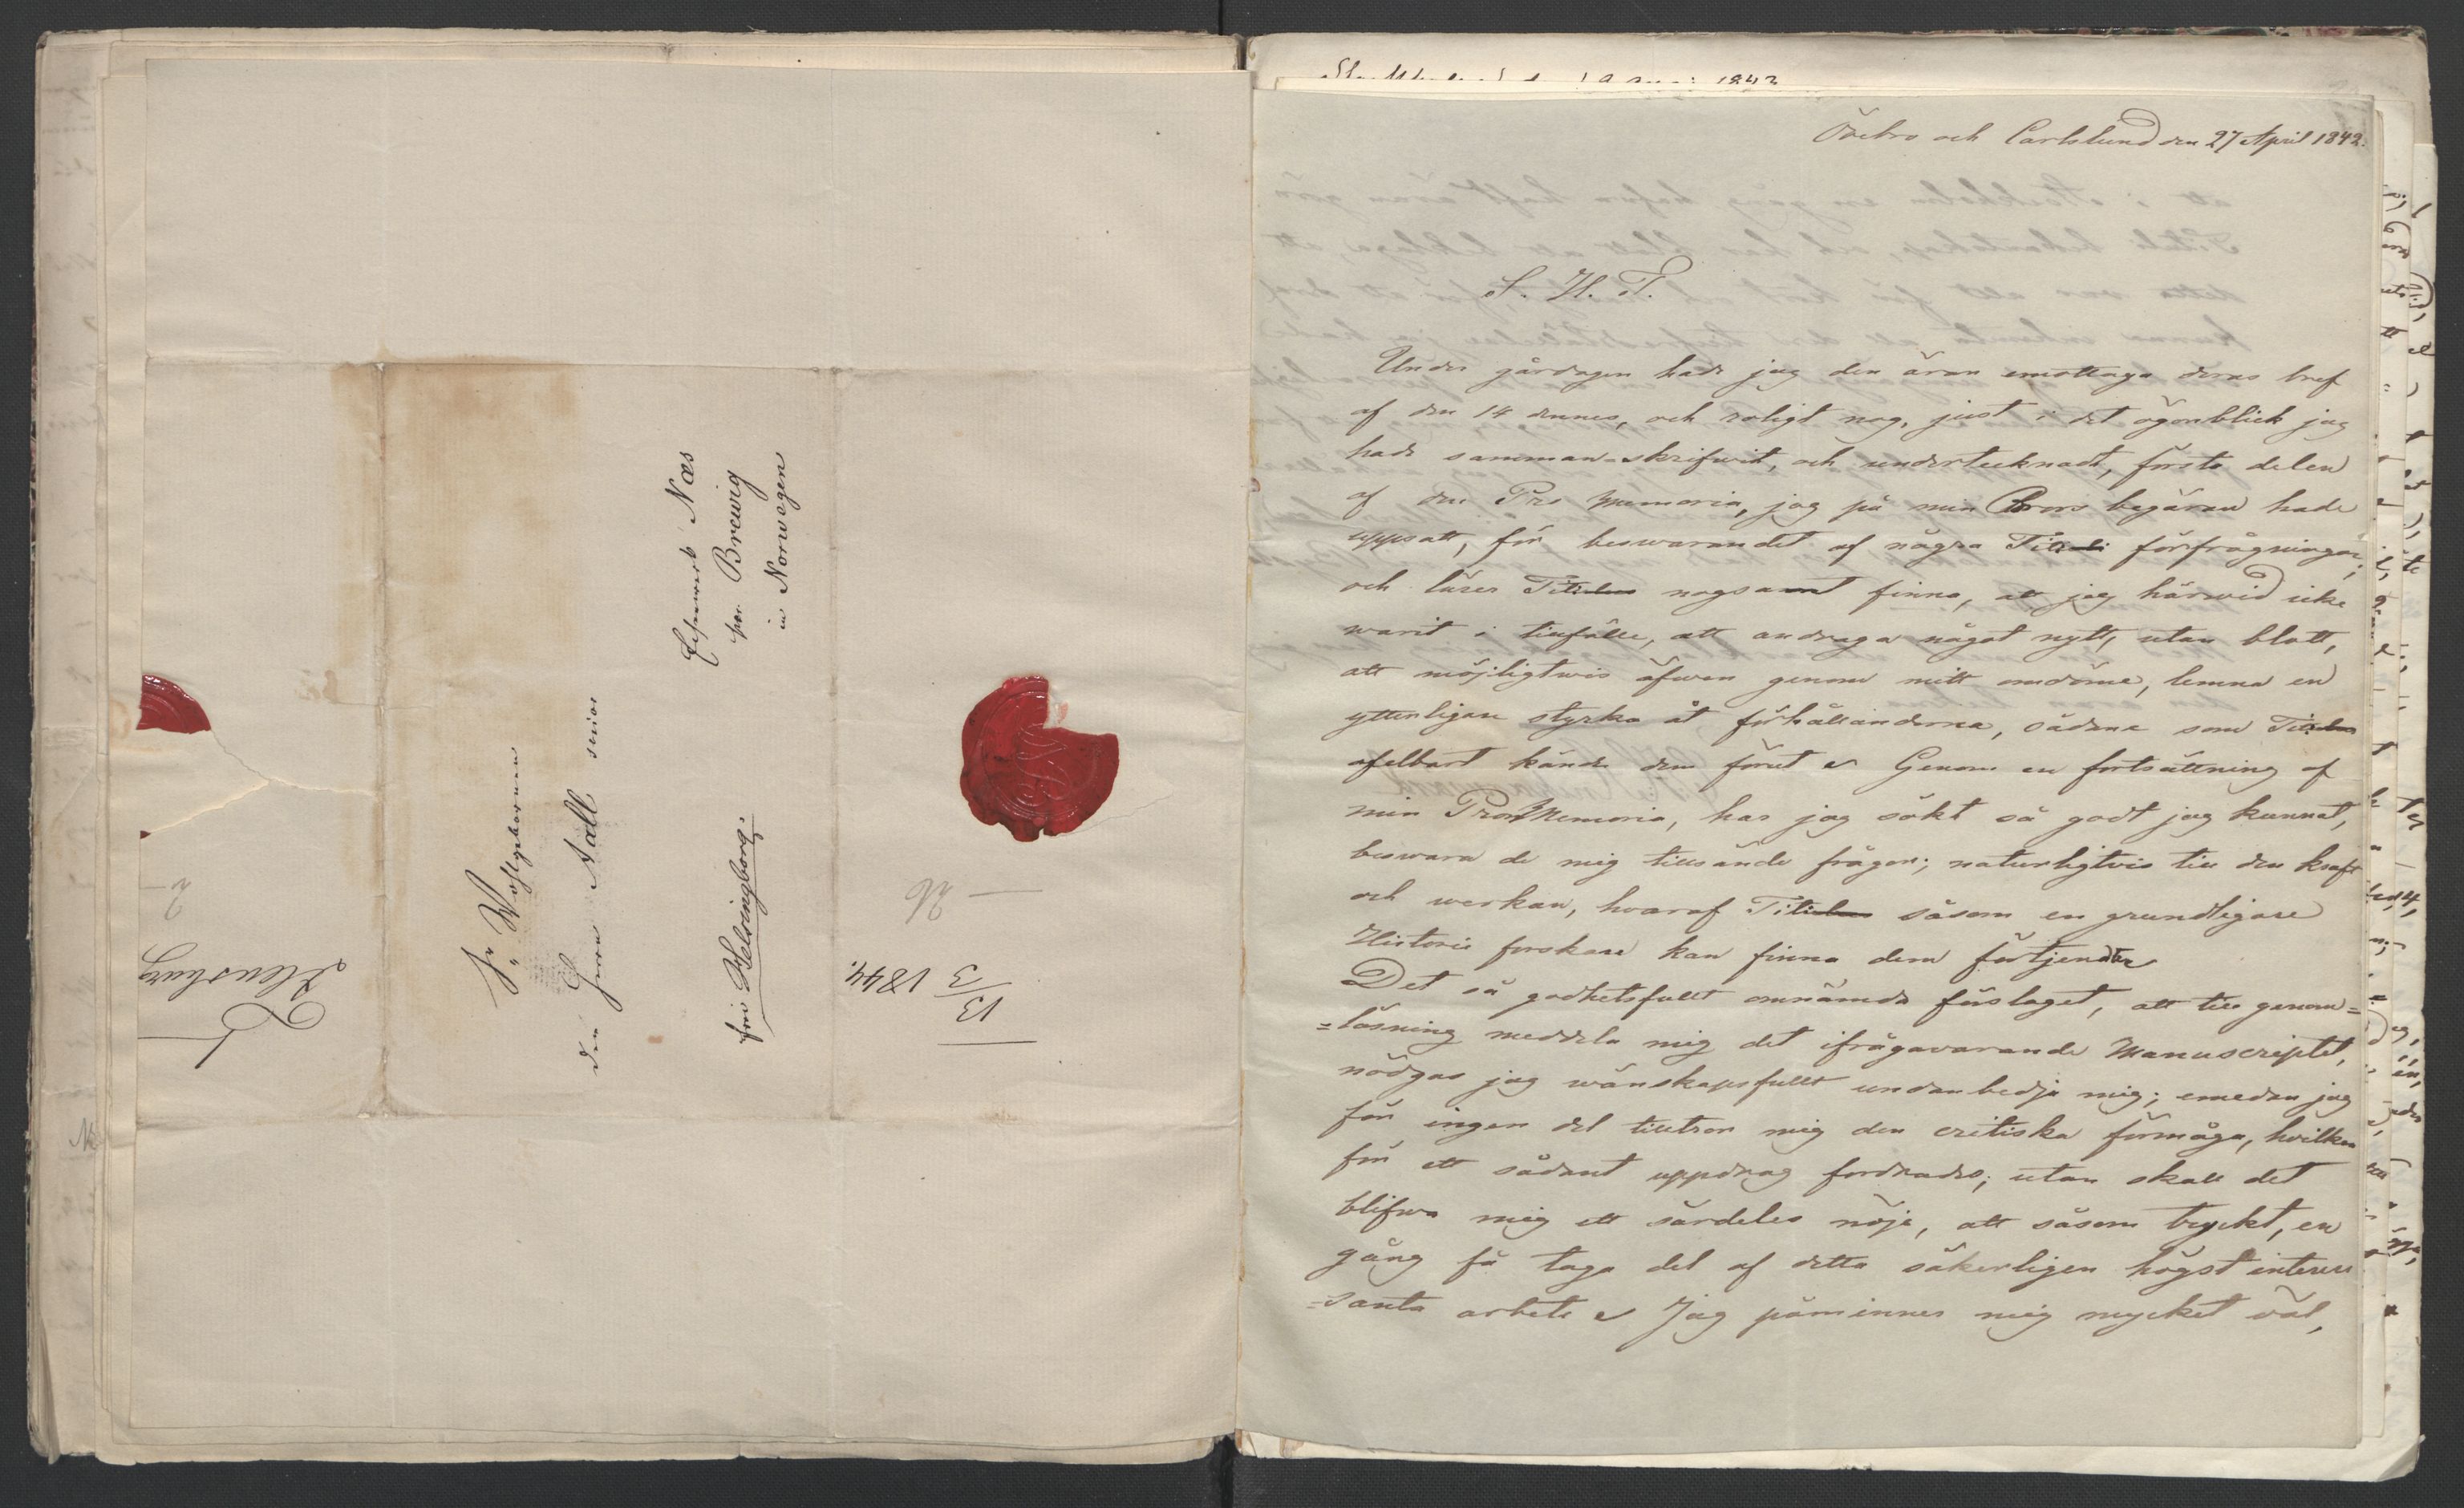 Sr. Wohlgeboren
den Herrn Aall senior
Eisenwerk Næs
per Brewig
in Norwegen
frei Helsingborg.
13/3 1844.
26
2
Flensburg
Örebro och Carlslund den 27 April 1842.
S. H. T.
Under gårdagen hade jag den äran emottaga deras bref
af den 14 dennes, och roligt nog, just i det ögonblick jag
hade samman-skrifwit, och undertecknadt, första delen
af den Pro Memoria, jag på min Brors begäran hade
uppsatt, för beswarandet af några Tituli förfrågningar;
och lärer Titulus nogsamt finna, att jag härwid icke
warit i tillfälle, att andraga något nytt, utan blott,
att möjligtwis äfwen genom mitt omdöme, lemna en
ytterligare styrka åt förhållanderne, sådane som Titulus
afelbart kände dem förut. Genom en fortsättning af
min Pro Memoria, har jag sökt så godt jag kunnat,
beswara de mig tillsände frågor; naturligtvis till den kraft
och werkan, hvaraf Titulus såsom en grundligare
Historie forskare kan finna dem förtjenta
Det så godhetsfullt omnämda förslaget, att till genom=
=läsning meddela mig det ifrågavarande Manuscriptet,
nödgas jag wänskapsfullt undanbedja mig; emedan jag
för ingen del tilltror mig den critiska förmåga, hvilken
för ett sådant uppdrag fordrades; utan skall det
blifwa mig ett särdeles nöje, att såsom tryckt, en
gång få taga del af detta säkerligen högst interes
=santa arbete. Jag påminner mig mycket väl,